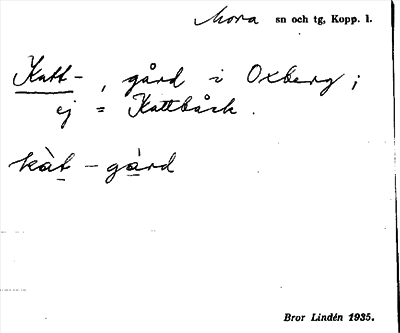 Mora sn och tg, Kopp. l.
Katt-, gård i Oxberg;
ej = Kattbäck.
kàt - gàrd
Bror Lindén 1935.